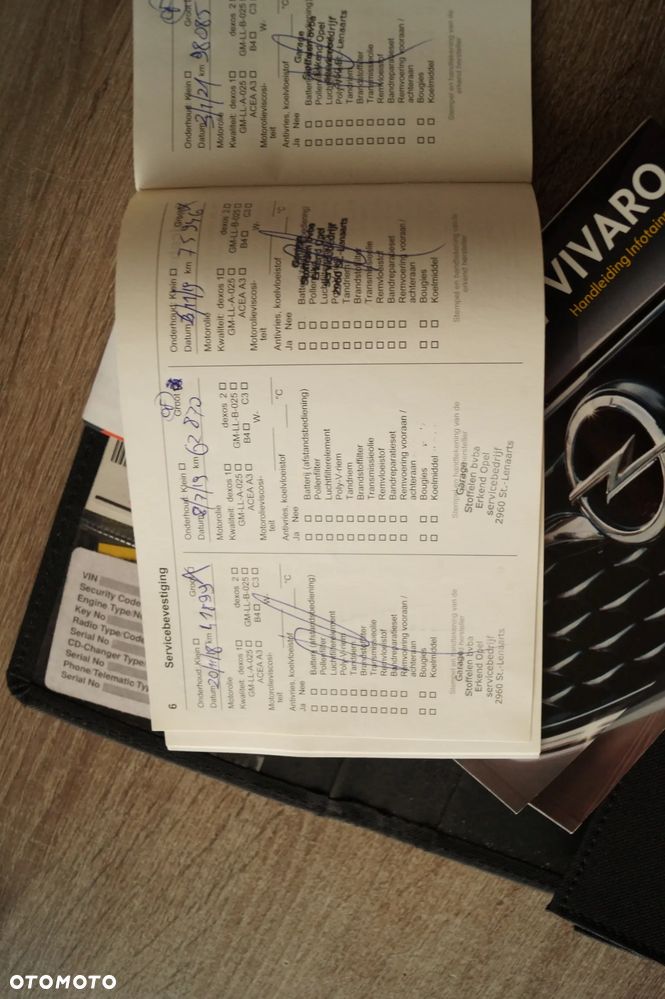 6
Servicebevestiging
Onderhoud: Klein ☐ Groot
Datum 20/11/18 km
Motorolie
Kwaliteit: dexos 1☐ dexos 2☐
GM-LL-A-025☐ GM-LL-B-025☐
ACEA A3☐ B4☐ C3☐
Motorolieviscosi-
teit W-
Antivries, koelvloeistof °C
Ja Nee
☐ ☐ Batterij (afstandsbediening)
☐ ☐ Pollenfilter
☐ ☐ Luchtfilterelement
☐ ☐ Poly-V-riem
☐ ☐ Tandriem
☐ ☐ Brandstoffilter
☐ ☐ Transmissieolie
☐ ☐ Remvloeistof
☐ ☐ Bandreparatieset
☐ ☐ Remvoering vooraan /
achteraan
☐ ☐ Bougies
☐ ☐ Koelmiddel
Stempel en handtekening van de
erkend hersteller
Garage
Stoffelen bvba
Erkend Opel
servicebedrijf
2960 St.-Lenaarts
Onderhoud: Klein ☐ Groot
Datum 8/7/19 km 62870
Motorolie
Kwaliteit: dexos 1☐ dexos 2☐
GM-LL-A-025☐ GM-LL-B-025☐
ACEA A3☐ B4☐ C3☐
Motorolieviscosi-
teit W-
Antivries, koelvloeistof °C
Ja Nee
☐ ☐ Batterij (afstandsbediening)
☐ ☐ Pollenfilter
☐ ☐ Luchtfilterelement
☐ ☐ Poly-V-riem
☐ ☐ Tandriem
☐ ☐ Brandstoffilter
☐ ☐ Transmissieolie
☐ ☐ Remvloeistof
☐ ☐ Bandreparatieset
☐ ☐ Remvoering vooraan /
achteraan
☐ ☐ Bougies
☐ ☐ Koelmiddel
Stempel en handtekening van de
erkend hersteller
Garage
Stoffelen bvba
Erkend Opel
servicebedrijf
2960 St.-Lenaarts
Onderhoud: Klein ☐ Groot
Datum km 75946
Motorolie
Kwaliteit: dexos 1☐ dexos 2☐
GM-LL-A-025☐ GM-LL-B-025☐
ACEA A3☐ B4☐ C3☐
Motorolieviscosi-
teit W-
Antivries, koelvloeistof °C
Ja Nee
☐ ☐ Tandriem
☐ ☐ Brandstoffilter
☐ ☐ Transmissieolie
☐ ☐ Remvloeistof
☐ ☐ Bandreparatieset
☐ ☐ Remvoering vooraan /
achteraan
☐ ☐ Bougies
☐ ☐ Koelmiddel
Stempel en handtekening van de
erkend hersteller
Garage
Stoffelen bvba
Erkend Opel
servicebedrijf
2960 St.-Lenaarts
Onderhoud: Klein ☐ Groot
Datum 3/1/21 km 98085
Motorolie
Kwaliteit: dexos 1☐
GM-LL-A-025☐ GM-LL-B-025☐
ACEA A3☐ B4☐ C3☐
Motorolieviscosi-
teit W-
Antivries, koelvloeistof
Ja Nee
☐ ☐ Tandriem
☐ ☐ Brandstoffilter
☐ ☐ Transmissieolie
☐ ☐ Remvloeistof
☐ ☐ Bandreparatieset
☐ ☐ Remvoering vooraan /
achteraan
☐ ☐ Bougies
☐ ☐ Koelmiddel
Stempel en handtekening van de
erkend hersteller
Garage
Stoffelen bvba
Erkend Opel
VIN
Security Code
Engine Type/
Key No
Radio Type/Co
Serial No
CD-Changer Type
Serial No
Phone/Telematic Ty
Serial No
VIVARO
Handleiding Infotain
OTOMOTO